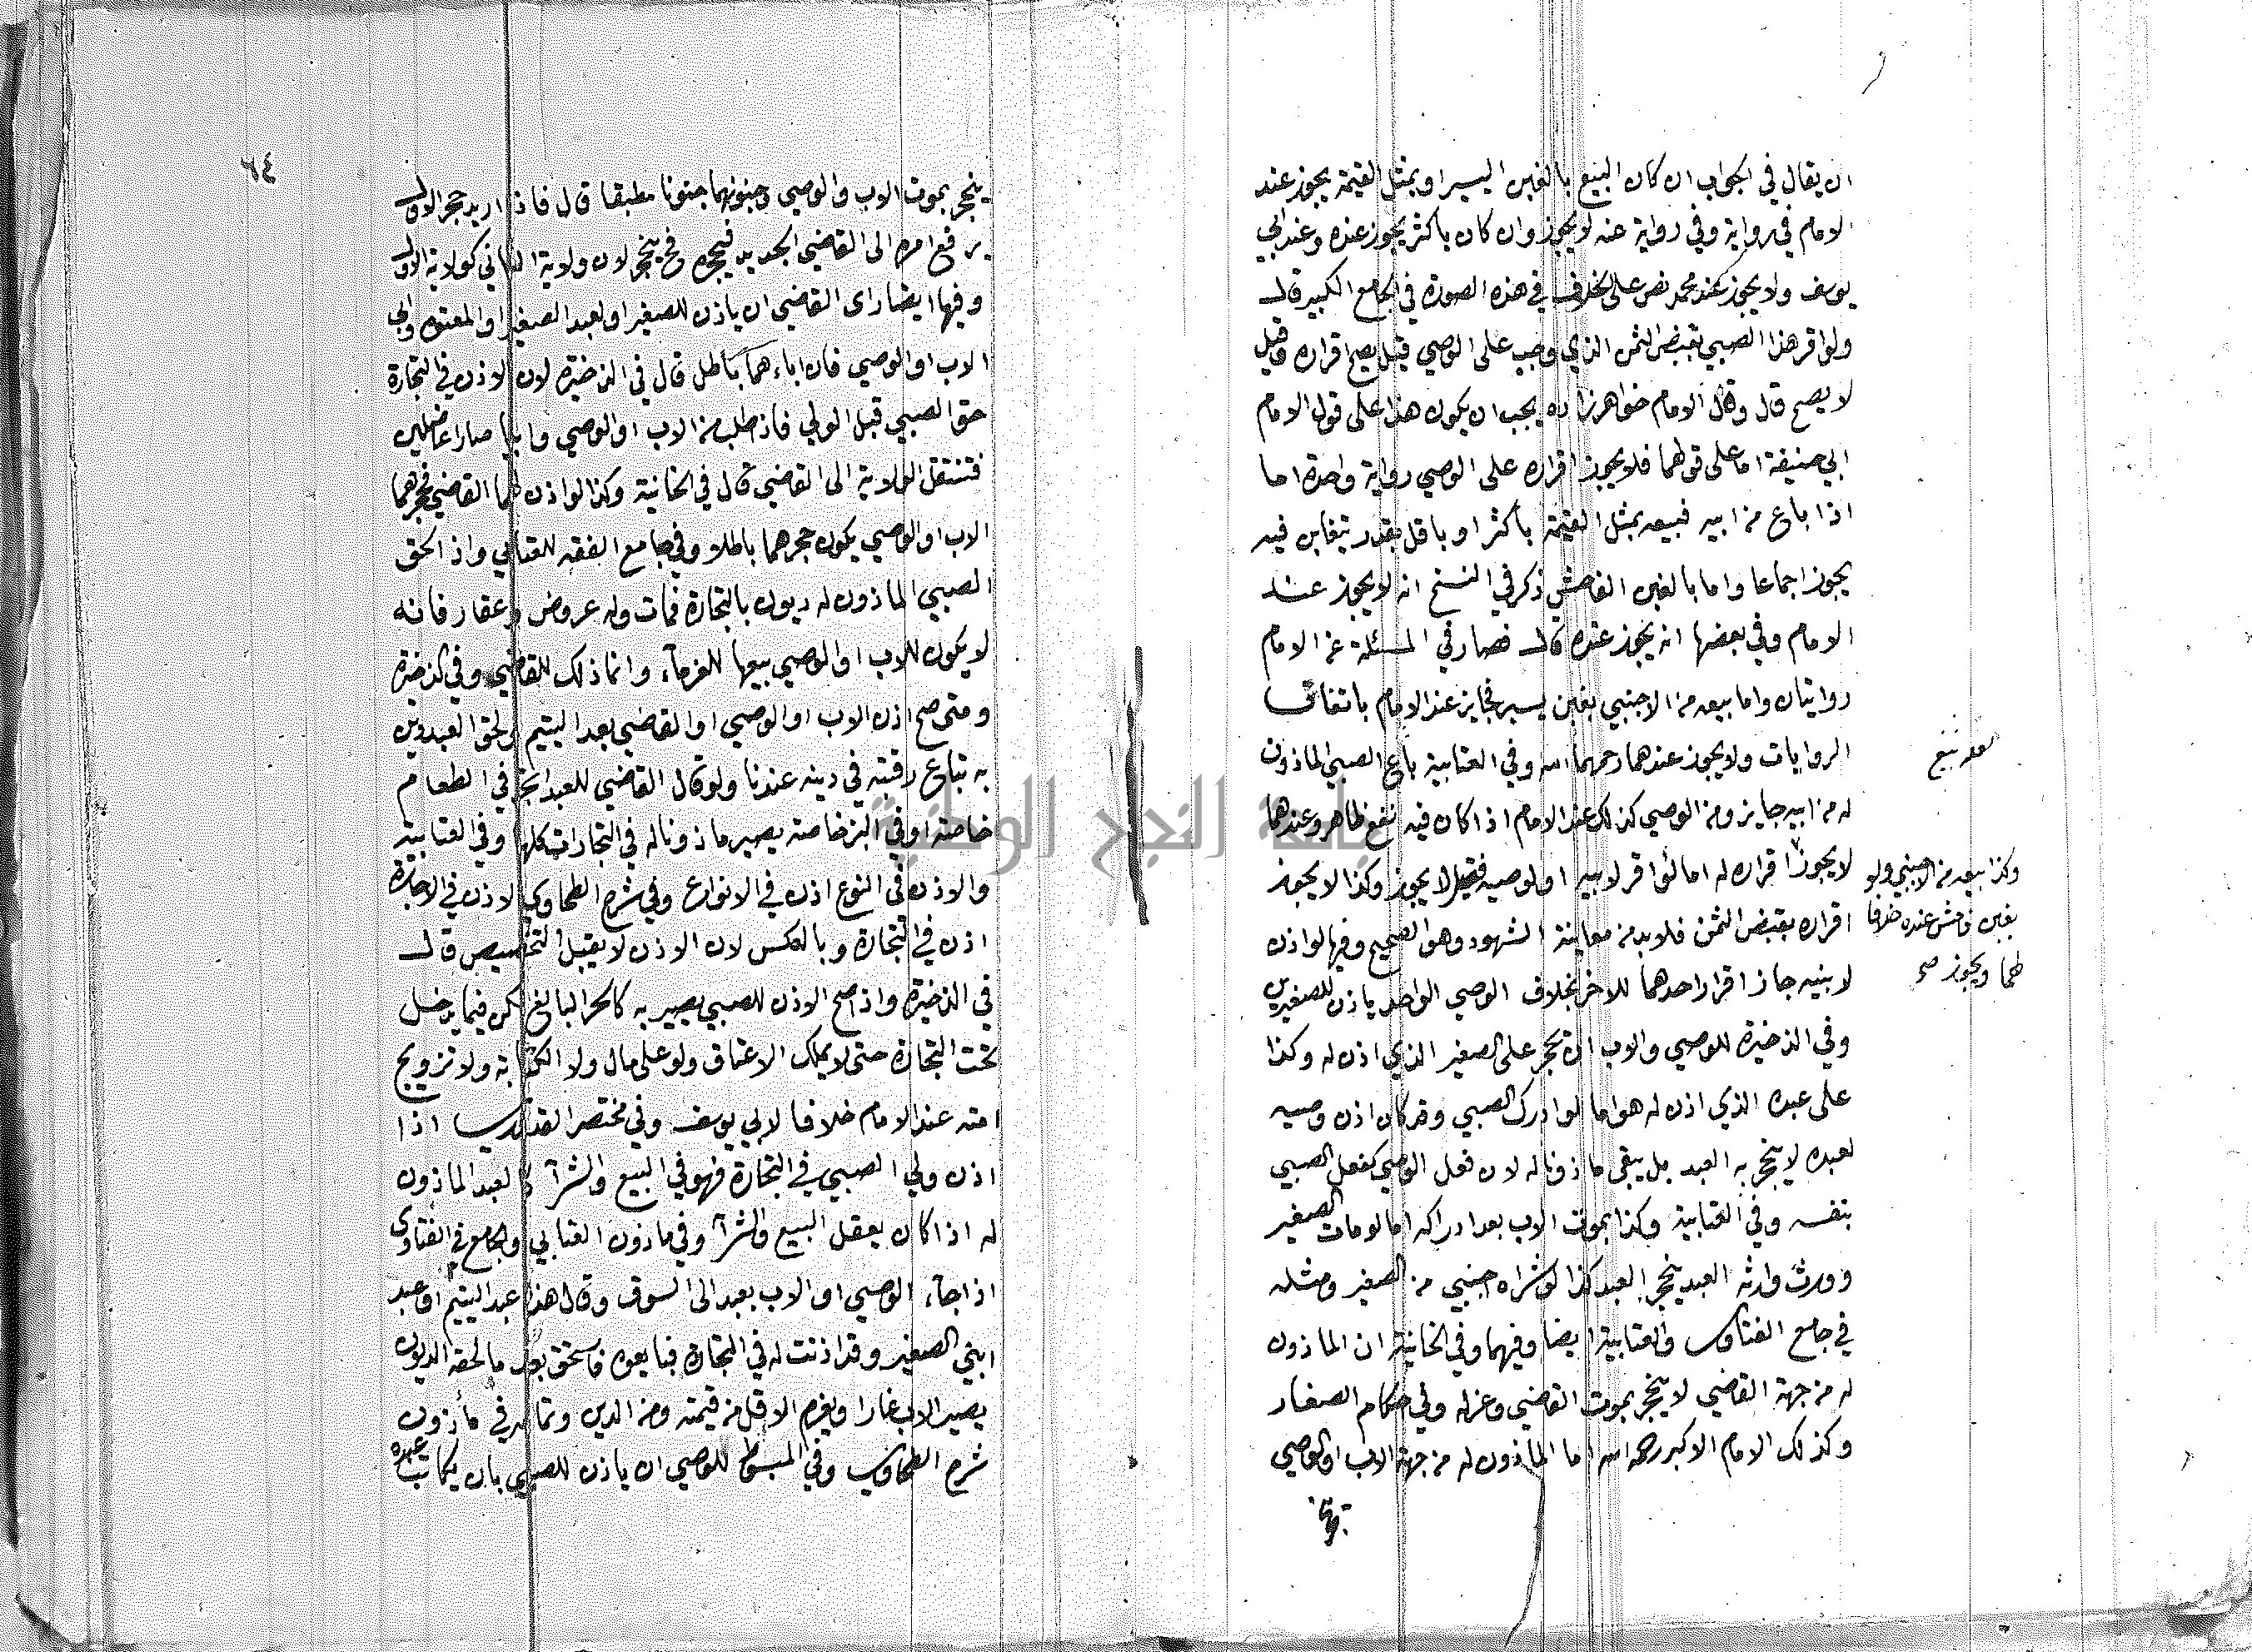 ان يقال في الجواب ان كان البيع بالغبن اليسير او بمثل القيمة يجوز عند
الامام في رواية وفي رواية عنه لا يجوز وان كان باكثر يجوز عنده وعند ابي
يوسف ولا يجوز عند محمد نص على الخلاف في هذه الصورة في الجامع الكبير قال
ولو اقر هذا الصبي بقبض الثمن الذي وجب على الوصي قيل يصح اقراره وقيل
لا يصح قال وقال الامام خواهرزاده يجب ان يكون هذا على قول الامام
ابي حنيفة اما على قولهما فلا يجوز اقراره على الوصي رواية واحدة اما
اذا باع من ابيه فبيعه بمثل القيمة باكثر او باقل بقدر يتغابن فيه
يجوز اجماعا واما بالغبن الفاحش ذكر في النسخ انه لا يجوز عند
الامام وفي بعضها انه يجوز عنده قال فصار في المسئلة عن الامام
روايتان واما بيعه من الاجنبي بغبن يسير فجايز عند الامام باتفاق
الروايات ولا يجوز عندهما رحمهما الله وفي العتابية باع الصبي الماذون
له من ابيه جايز ومن الوصي كذلك عند الامام اذا كان فيه نفع ظاهر وعندهما
لا يجوز اقراره له اما لو اقر لابيه او لوصيه فقيل لا يجوز وكذا لا يجوز
وكذا بيعه من الاجنبي ولو
بغبن فاحش عنده خلافا
لهما ويجوز صح
اقراره بقبض الثمن فلا بد من معاينة الشهود وهو الصحيح وفيها لو اذن
لابنيه جاز اقرار احدهما للاخر بخلاف الوصي الواحد ياذن للصغيرين
وفي الذخيرة للوصي والاب ان يحجر على الصغير الذي اذن له وكذا
على عبده الذي اذن له هو اما لو ادرك الصبي وقد كان اذن وصيه
لعبده لا ينحجر به العبد بل يبقى ماذونا له لان فعل الوصي كفعل الصبي
بنفسه وفي العتابية وكذا بموت الاب بعد ادراكه اما لو مات الصغير
وورث وارثه العبد ينحجر العبد كذا لو شراه اجنبي من الصغير ومثله
في جامع الفتاوى والعتابية ايضا وفيهما وفي الخانية ان الماذون
له من جهة القاضي لا ينحجر بموت القاضي وعزله وفي احكام الصغار
وكذلك الامام الاكبر رحمه الله اما الماذون له من جهة الاب او الوصي
٦٤
ينحجر بموت الاب والوصي وجنونهما جنونا مطبقا قال فاذا اريد حجر الاول
يرفع امره الى القاضي الجديد فيحجره فح ينحجر لان ولاية الثاني كولاية الاول
وفيها ايضا راى القاضي ان ياذن للصغير او لعبد الصغير او المعتوه وابى
الاب او الوصي فان اباءهما باطل قال في الذخيرة لان الاذن في التجارة
حق الصبي قبل الولي فاذا طلب من الاب او الوصي وابيا صارا عاضلين
فتنتقل الولاية الى القاضي قال في الخانية وكذا لو اذن لهما القاضي فحجرهما
الاب او الوصي يكون حجرهما باطلا وفي جامع الفقه للعتابي واذا لحق
الصبي الماذون له ديون بالتجارة فمات وله عروض وعقار فانه
لا يكون للاب او الوصي بيعها للغرماء وانما ذلك للقاضي وفي الذخيرة
ومتى صح اذن الاب او الوصي او القاضي بعد اليتيم ولحق العبد دين
به تباع رقبته في دينه عندنا ولو قال القاضي للعبد اتجر في الطعام
خاصة او في البز خاصة يصير ماذونا له في التجارات كلها وفي العتابية
والاذن في النوع اذن في الانواع وفي شرح الطحاوي الاذن في الاجارة
اذن في التجارة وبالعكس لان الاذن لا يقبل التخصيص قال
في الذخيرة واذا صح الاذن للصبي يصير به كالحر البالغ لكن فيما يدخل
تحت التجارة حتى لا يملك الاعتاق ولو على مال ولا الكتابة ولا تزويج
امته عند الامام خلافا لابي يوسف وفي مختصر القدوري اذا
اذن ولي الصبي في التجارة فهو في البيع والشراء كالعبد الماذون
له اذا كان يعقل البيع والشراء وفي ماذون العتابي والجامع في الفتاوى
اذا جاء الوصي او الاب بعبد الى السوق وقال هذا عبد اليتيم او عبد
ابني الصغير وقد اذنت له في التجارة فبايعوه فاستحق بعد ما لحقه الديون
يصير الاب غارا ويغرم الاقل من قيمته ومن الدين وتمامه في ماذون
شرح الطحاوي وفي المبسوط للوصي ان ياذن للصبي بان يكاتب عبده